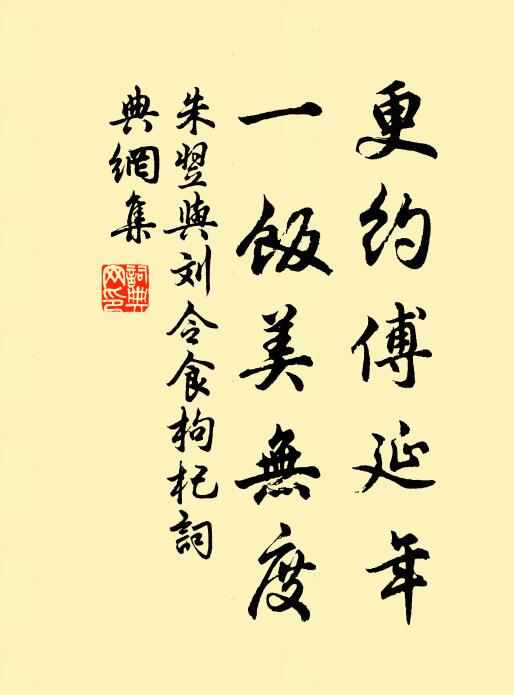 更约傅延年
一飯美無度
朱翌與刘令食枸杞詞
典網集
詞典网印